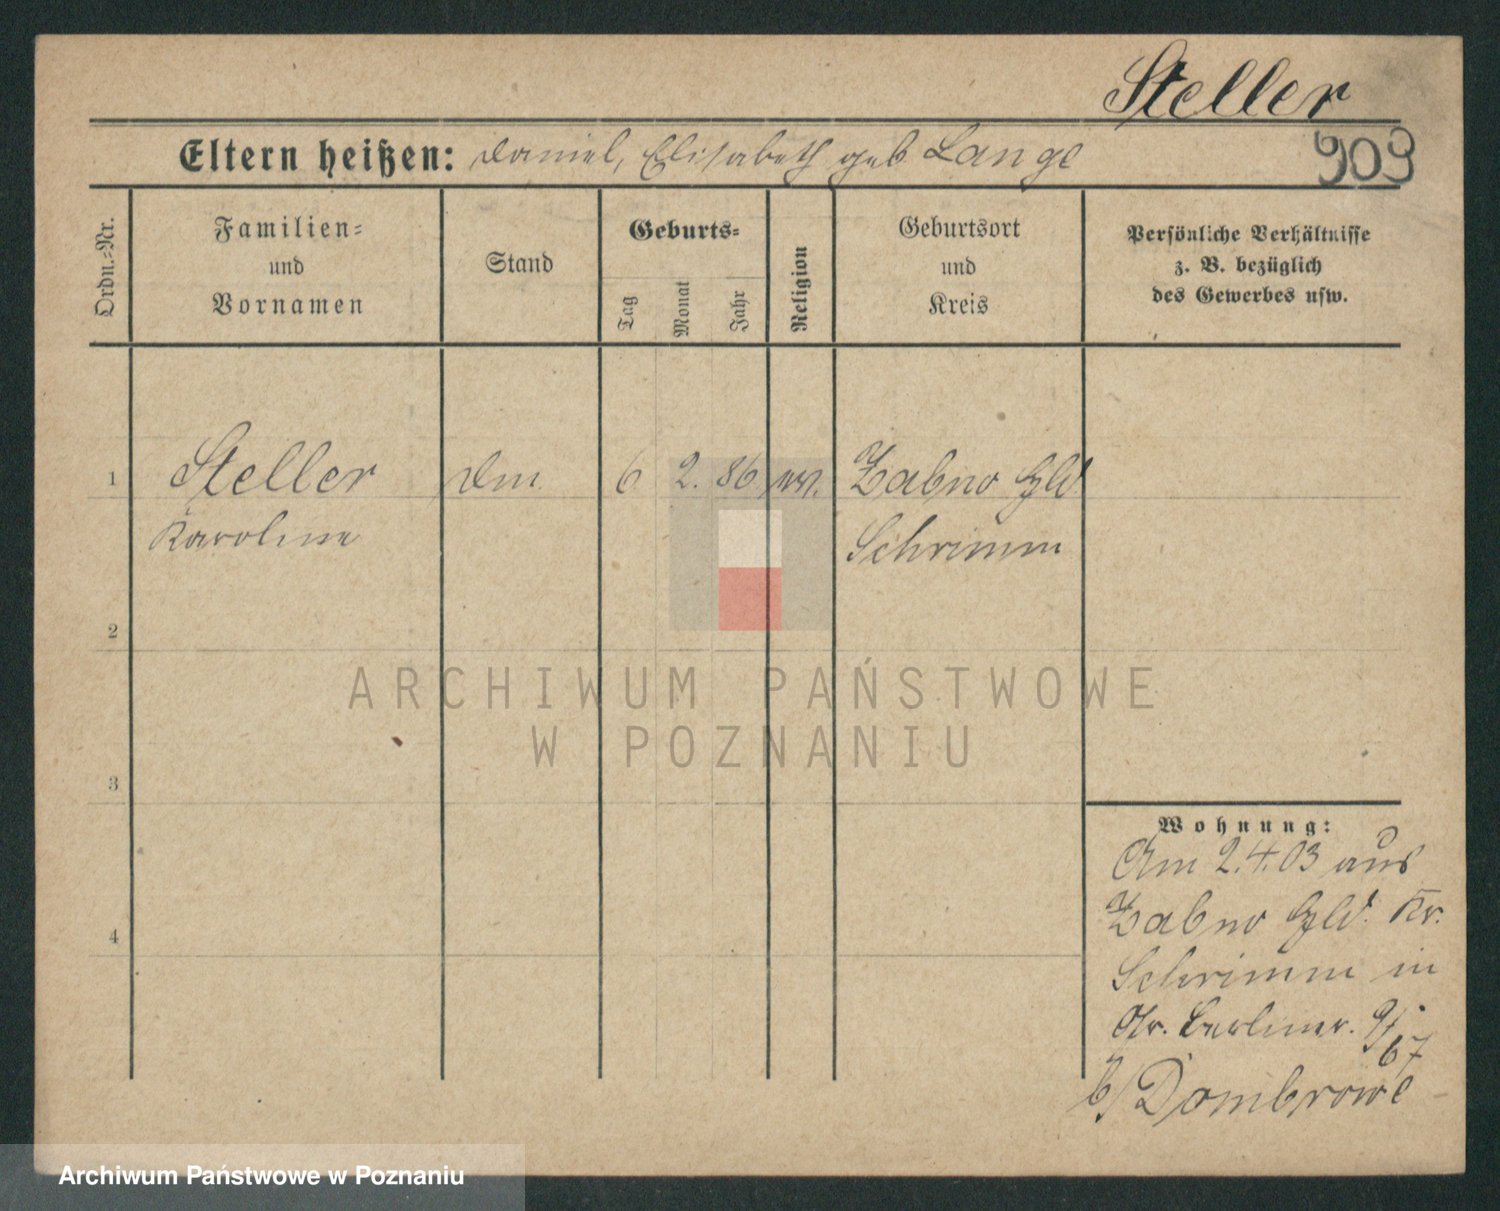 Steller
909
Eltern heißen: Daniel, Elisabeth geb. Lange
Ordn.-Nr.
Familien-
und
Vornamen
Stand
Geburts-
Tag
Monat
Jahr
Religion
Geburtsort
und
Kreis
Persönliche Verhältnisse
z. B. bezüglich
des Gewerbes usw.
1 Steller Dm 6 2. 86 ev. Zabno Hld
Karoline Schrimm
2
3
4
ARCHIWUM PAŃSTWOWE
W POZNANIU
Wohnung:
Am 2.4.03 aus
Zabno Hld. Kr.
Schrimm in
Gr. Berliner.
67
b/ Dombrowe
Archiwum Państwowe w Poznaniu